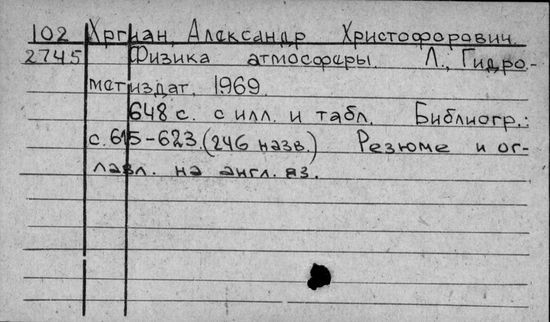 102 Хргиан, Александр Христофорович.
2745 Физика атмосферы. Л., Гидро-
метиздат, 1969.
648 с. с илл. и табл. Библиогр.:
с. 615-623. (246 назв.) Резюме и ог-
лавл. на англ. яз.